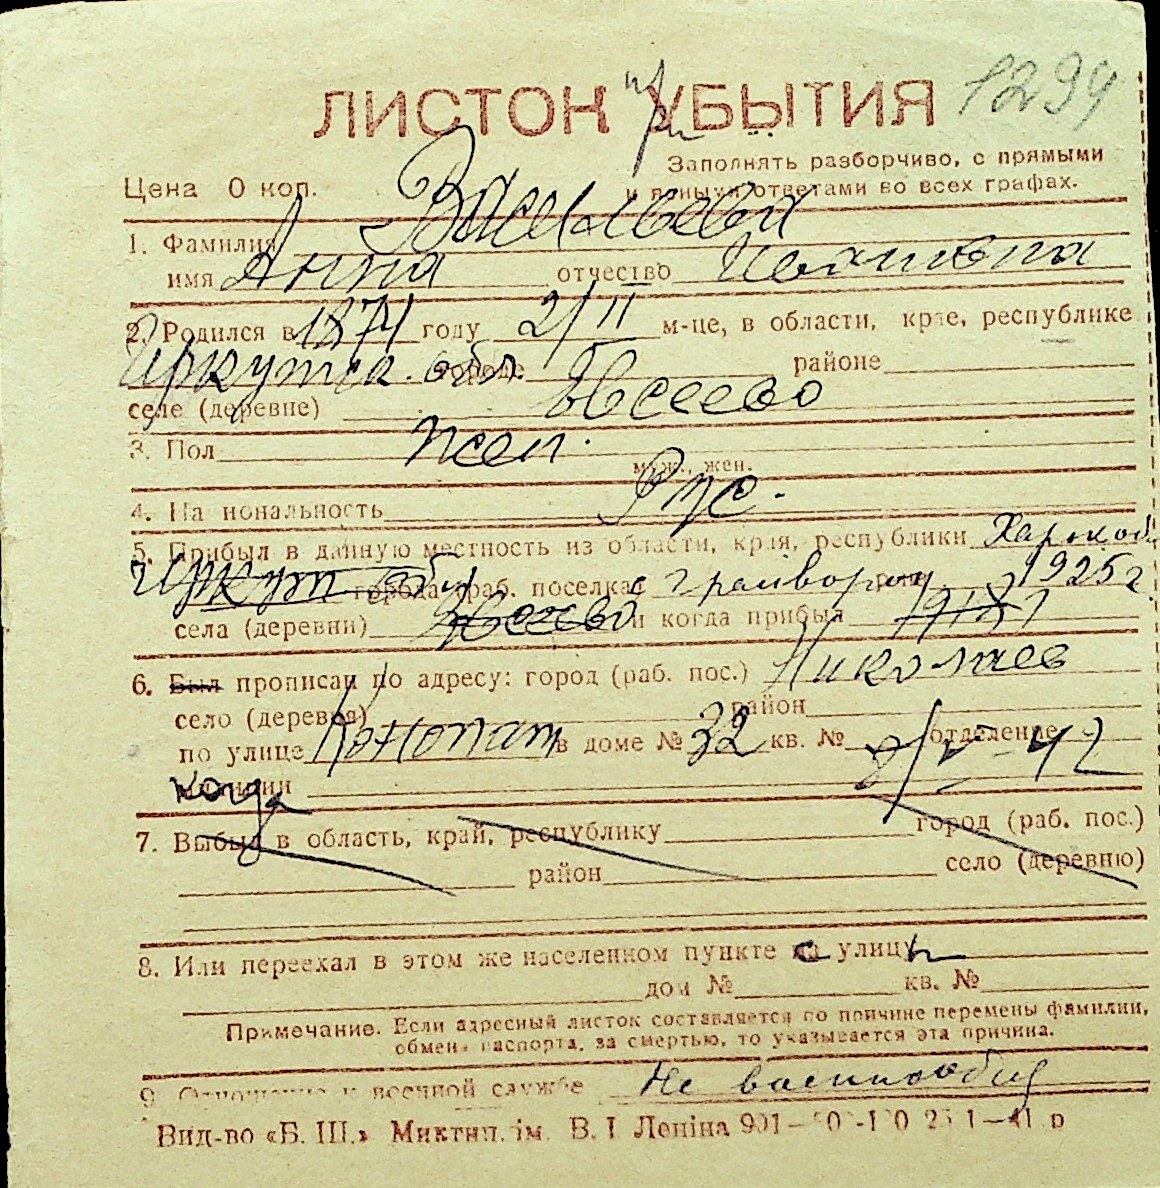 1294
ЛИСТОК УБЫТИЯ
при
Заполнять разборчиво, с прямыми
Цена 0 коп.
и ясными ответами во всех графах.
1. Фамилия Васильева
имя Анна отчество Ивановна
2. Родился в 1874 году 2/II м-це, в области, крае, республике
Иркутск. обл. городе районе
селе (деревне) Евсеево
3. Пол жен.
муж., жен.
4. На иональность Рус.
5. Прибыл в данную местность из области, края, республики Харьков
Иркут обл города (раб. поселка) с Грайворон рай. 1925 г.
села (деревни) Евсеево и когда прибыл
6. Был прописан по адресу: город (раб. пос.) Николаев
село (деревня) район
по улице в доме № 32 кв. № отделение
милиции когда 8/V-42
7. Выбыл в область, край, республику город (раб. пос.)
район село (деревню)
8. Или переехал в этом же населенном пункте с улицы
дом № кв. №
Примечание. Если адресный листок составляется по причине перемены фамилии,
обмена паспорта, за смертью, то указывается эта причина.
9. Отношение к военной службе Не военнообяз
Вид-во «Б. Ш.» Миктип. ім. В. І Леніна